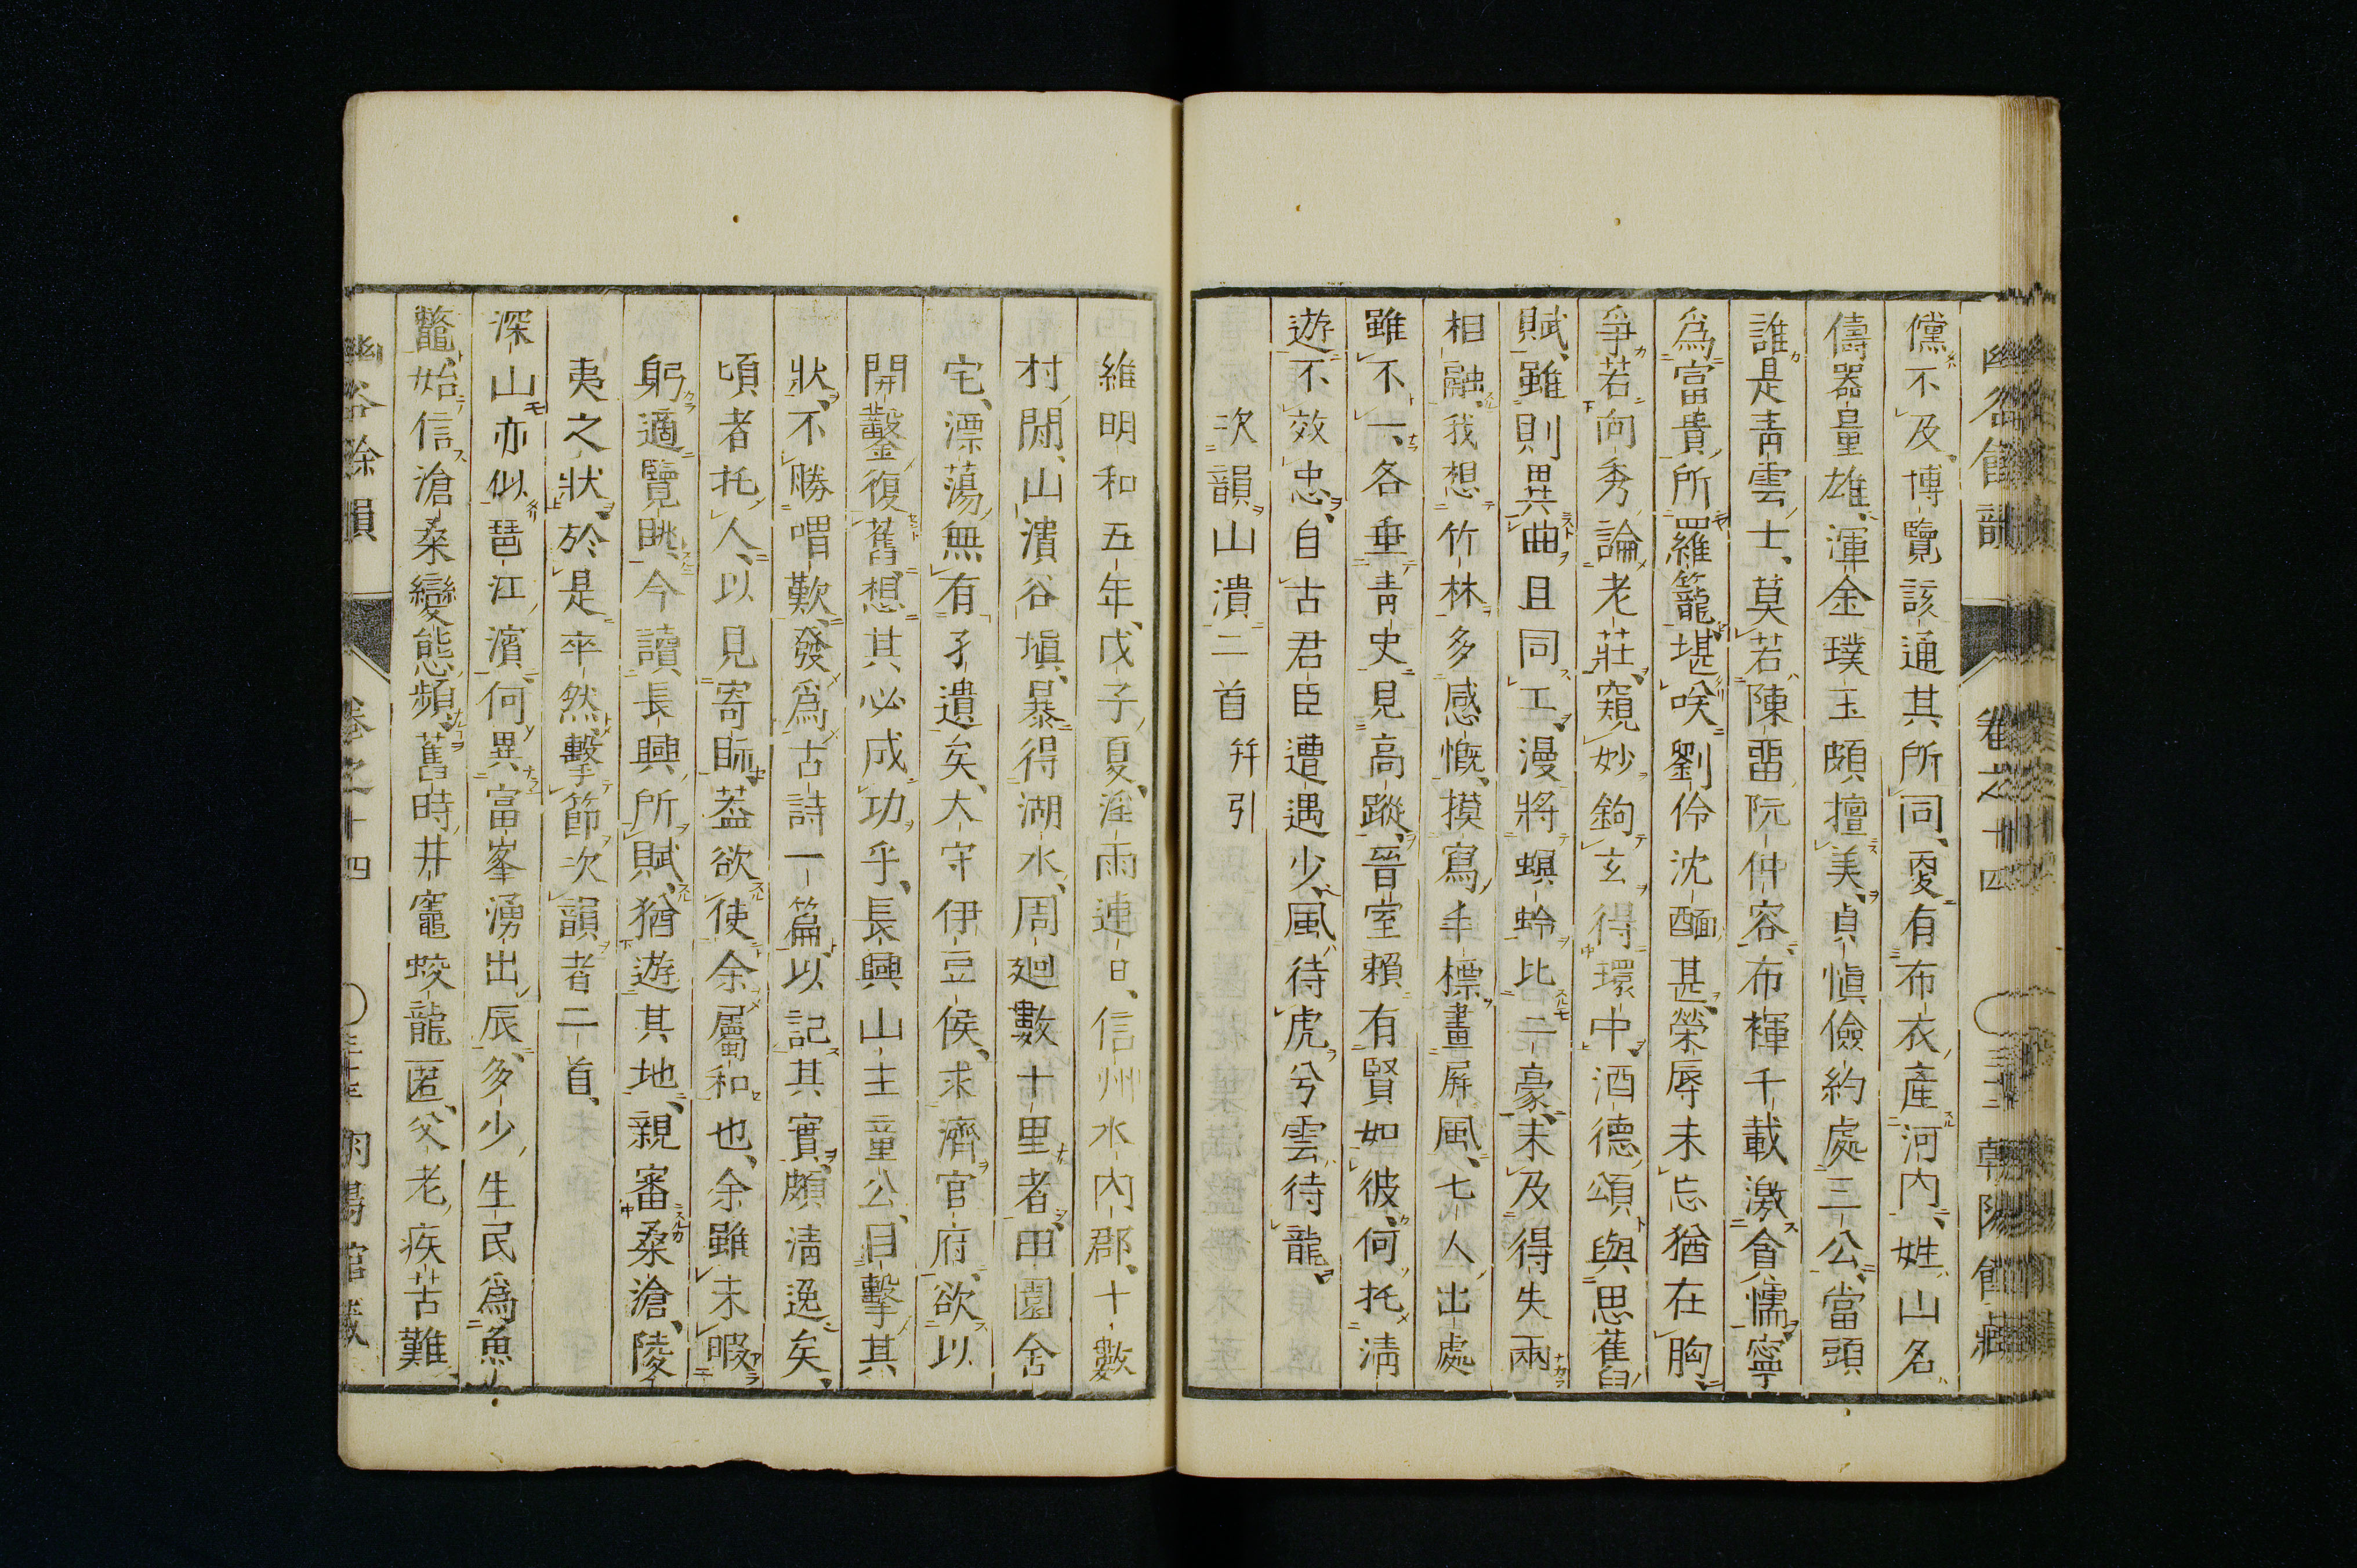 儻不及博覽該通其所同、叜有布衣產河內、姓山名
儔器量雄、渾金璞玉頗擅美、貞愼儉約處三公、當頭
誰是靑雲士、莫若陳畱阮仲容、布褌千載激貪懦、寧
爲富貴所羅籠、堪咲劉伶沈酗甚、榮辱未忘猶在胸
爭若向秀論老莊、窺妙鉤玄得環中、酒德頌與思舊
賦、雖則異曲且同工、漫將螟蛉比二豪、未及得失兩
相融、我想竹林多感慨、摸寫手標畫屏風、七人出處
雖不一、各垂靑史見高蹤、晉室賴有賢如彼、何托淸
遊不效忠、自古君臣遭遇少、風待虎兮雲待龍
次韻山潰二首幷引
維明和五年、戊子夏、淫雨連日、信州水內郡、十數
村閒、山潰谷塡、暴得湖水、周廻數十里者、田園舍
宅、漂蕩無有孑遺矣、大守伊豆侯、求濟官府、欲以
開鑿復舊、想其必成功乎、長興山主童公、目擊其
狀、不勝喟歎、發爲古詩一篇、以記其實、頗淸逸矣、
頃者托人、以見寄眎、葢欲使余屬和也、余雖未暇
躬適覽眺、今讀長興所賦、猶遊其地、親審桑滄、陵
夷之狀、於是卒然擊節次韻者二首、
深山亦似琶江濱、何異富峯湧出辰、多少生民爲魚
鼈、始信滄桑變態頻、舊時井竈蛟龍匿、父老疾苦難
幽谷餘韻 卷之十四